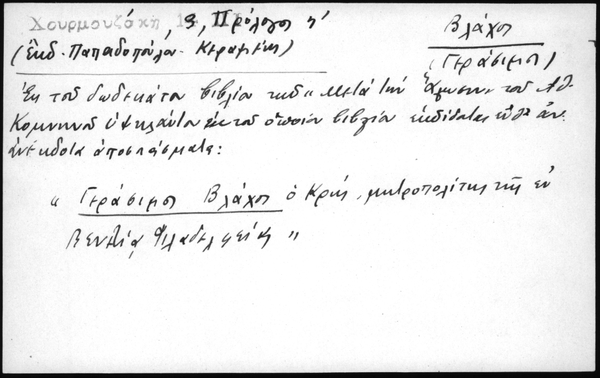 Χουρμουζάκη 13, Πρόλογος η'
(Ἐκδ. Παπαδοπούλου Κεραμέως)
Βλάχος
(Γεράσιμος)
Ἐκ τοῦ δωδεκάτου βιβλίου τῆς « Μετὰ τὴν Ἅλωσιν » τοῦ Ἀθ.
Κομνηνοῦ Ὑψηλάντου ἐκ τοῦ ὁποίου βιβλίου ἐκδίδεται ἀν
ἀνέκδοτα ἀποσπάσματα:
« Γεράσιμος Βλάχος ὁ Κρής, μητροπολίτης τῆς ἐν
Βενετίᾳ Φιλαδελφείας »